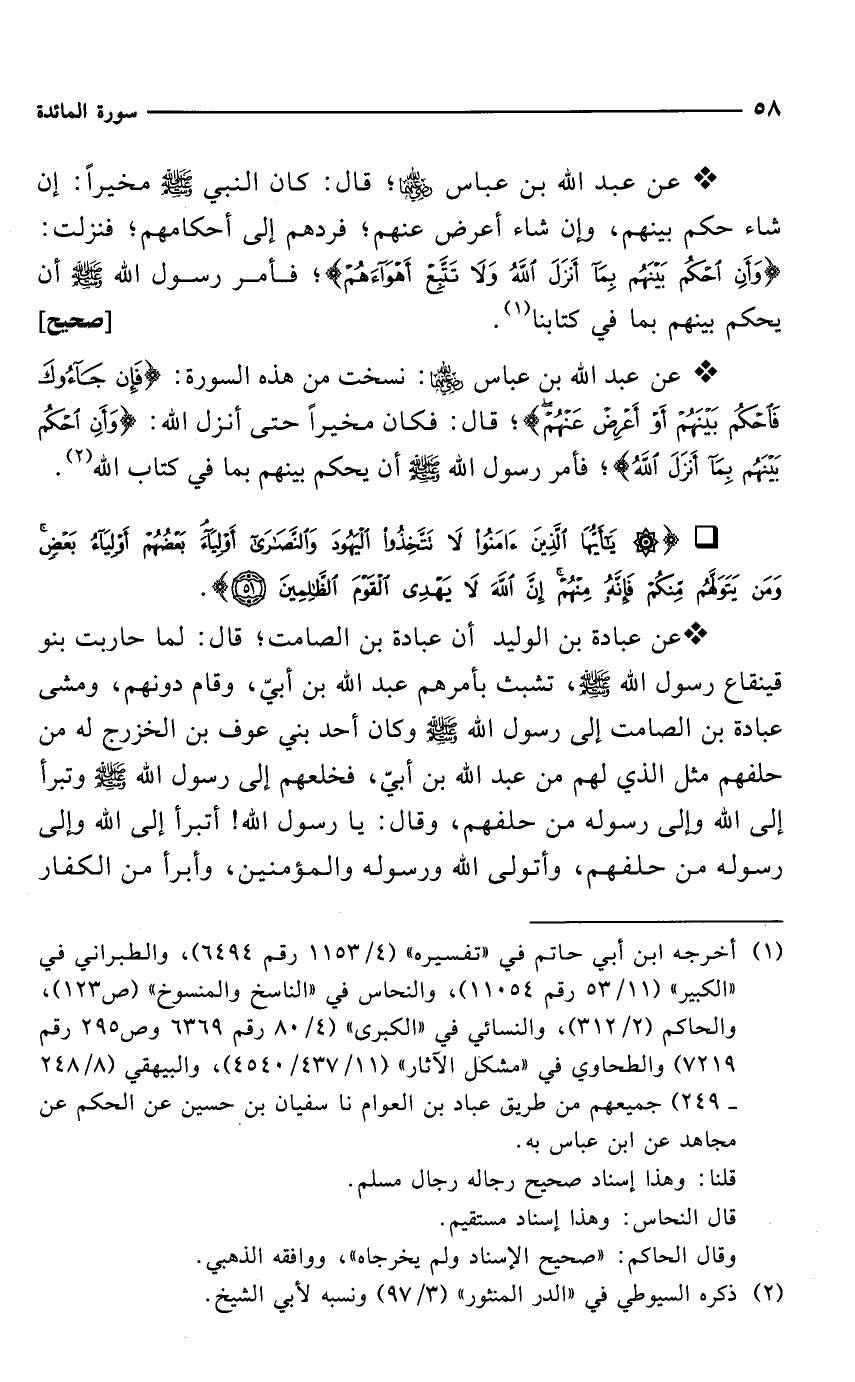 ٥٨ سورة المائدة
❖ عن عبد الله بن عباس ﵄؛ قال: كان النبي ﷺ مخيراً: إن
شاء حكم بينهم، وإن شاء أعرض عنهم؛ فردهم إلى أحكامهم؛ فنزلت:
﴿وَأَنِ ٱحْكُم بَيْنَهُم بِمَآ أَنزَلَ ٱللَّهُ وَلَا تَتَّبِعْ أَهْوَآءَهُمْ﴾؛ فأمر رسول الله ﷺ أن
يحكم بينهم بما في كتابنا(١). [صحيح]
❖ عن عبد الله بن عباس ﵄: نسخت من هذه السورة: ﴿فَإِن جَآءُوكَ
فَٱحْكُم بَيْنَهُمْ أَوْ أَعْرِضْ عَنْهُمْۖ﴾؛ قال: فكان مخيراً حتى أنزل الله: ﴿وَأَنِ ٱحْكُم
بَيْنَهُم بِمَآ أَنزَلَ ٱللَّهُ﴾؛ فأمر رسول الله ﷺ أن يحكم بينهم بما في كتاب الله(٢).
❑ ﴿۞ يَٰٓأَيُّهَا ٱلَّذِينَ ءَامَنُوا۟ لَا تَتَّخِذُوا۟ ٱلْيَهُودَ وَٱلنَّصَٰرَىٰٓ أَوْلِيَآءَۘ بَعْضُهُمْ أَوْلِيَآءُ بَعْضٍۚ
وَمَن يَتَوَلَّهُم مِّنكُمْ فَإِنَّهُۥ مِنْهُمْۗ إِنَّ ٱللَّهَ لَا يَهْدِى ٱلْقَوْمَ ٱلظَّٰلِمِينَ ﴿٥١﴾﴾.
❖عن عبادة بن الوليد أن عبادة بن الصامت؛ قال: لما حاربت بنو
قينقاع رسول الله ﷺ، تشبث بأمرهم عبد الله بن أبيّ، وقام دونهم، ومشى
عبادة بن الصامت إلى رسول الله ﷺ وكان أحد بني عوف بن الخزرج له من
حلفهم مثل الذي لهم من عبد الله بن أبيّ، فخلعهم إلى رسول الله ﷺ وتبرأ
إلى الله وإلى رسوله من حلفهم، وقال: يا رسول الله! أتبرأ إلى الله وإلى
رسوله من حلفهم، وأتولى الله ورسوله والمؤمنين، وأبرأ من الكفار
(١) أخرجه ابن أبي حاتم في «تفسيره» (٤/ ١١٥٣ رقم ٦٤٩٤)، والطبراني في
«الكبير» (١١/ ٥٣ رقم ١١٠٥٤)، والنحاس في «الناسخ والمنسوخ» (ص١٢٣)،
والحاكم (٢/ ٣١٢)، والنسائي في «الكبرى» (٤/ ٨٠ رقم ٦٣٦٩ وص٢٩٥ رقم
٧٢١٩) والطحاوي في «مشكل الآثار» (١١/ ٤٣٧/ ٤٥٤٠)، والبيهقي (٨/ ٢٤٨
ـ ٢٤٩) جميعهم من طريق عباد بن العوام نا سفيان بن حسين عن الحكم عن
مجاهد عن ابن عباس به.
قلنا: وهذا إسناد صحيح رجاله رجال مسلم.
قال النحاس: وهذا إسناد مستقيم.
وقال الحاكم: «صحيح الإسناد ولم يخرجاه»، ووافقه الذهبي.
(٢) ذكره السيوطي في «الدر المنثور» (٣/ ٩٧) ونسبه لأبي الشيخ.